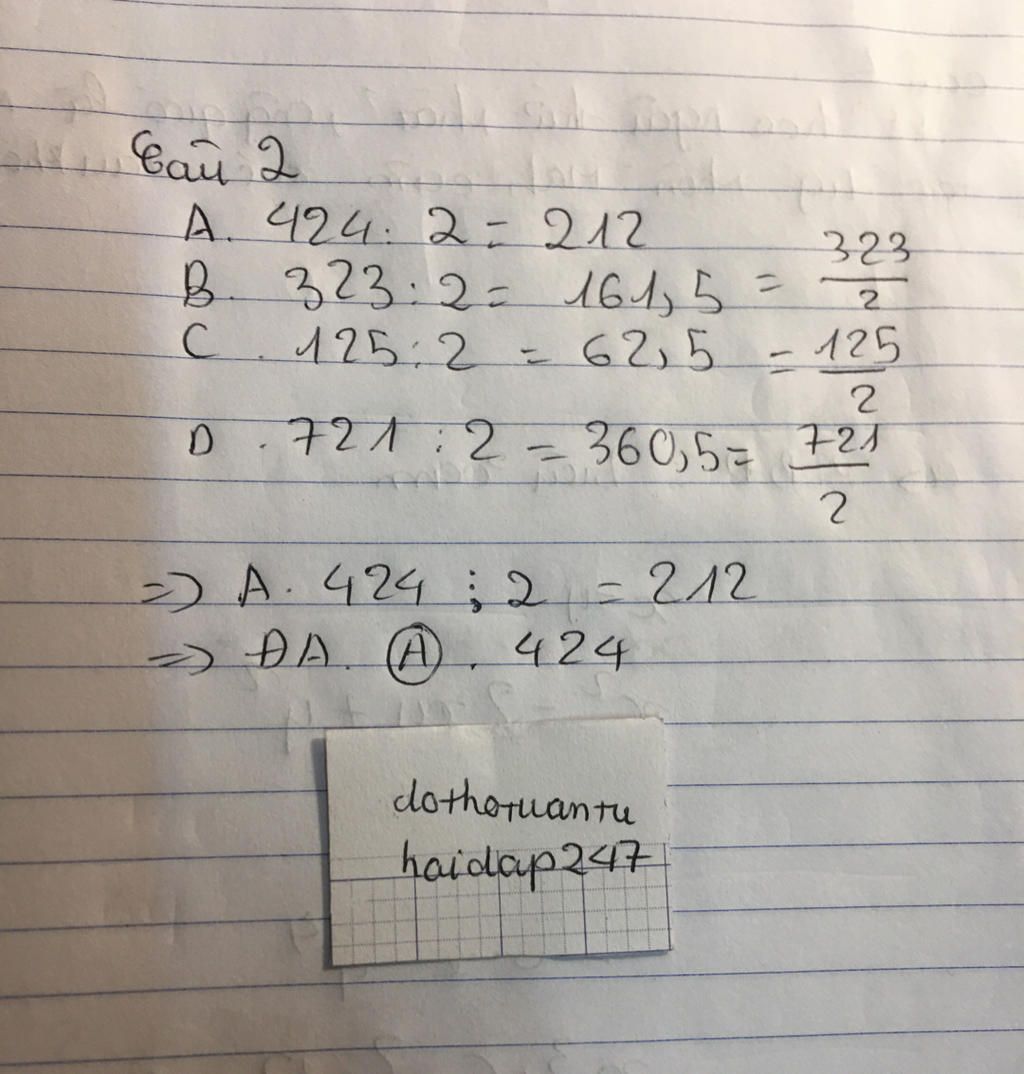 Câu 2
A. 424 : 2 = 212
B. 323 : 2 = 161,5 = 323/2
C. 125 : 2 = 62,5 = 125/2
D. 721 : 2 = 360,5 = 721/2
=> A. 424 : 2 = 212
=> ĐA. A. 424
dothotuantu
haidap247